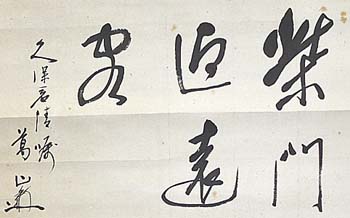 柴門
迎遠
客
久保君清嘱
葛山